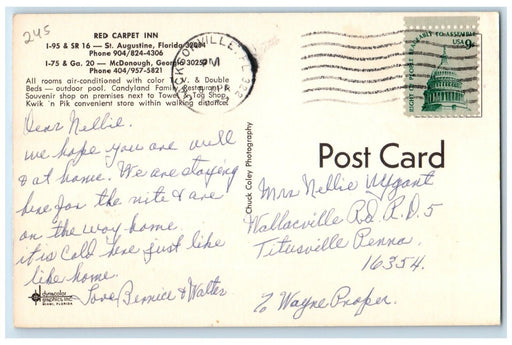 245
RED CARPET INN
I-95 & SR 16 — St. Augustine, Florida 32084
Phone 904/824-4306
I-75 & Ga. 20 — McDonough, Georgia 30253
Phone 404/957-5821
All rooms air-conditioned with color T.V. & Double
Beds — outdoor pool. Candyland Family Restaurant &
Souvenir shop on premises next to Towel & Tog Shop,
Kwik 'n Pik convenient store within walking distance
JACKSONVILLE, FL 322
PM
RIGHT OF PEOPLE PEACEABLY TO ASSEMBLE
USA 9c
Dear Nellie.
we hope you are well
& at home. We are staying
here for the nite & are
on the way home.
it is cold here just like
like home.
Love Bernice & Walter
dynacolor
GRAPHICS, INC.
MIAMI, FLORIDA
Chuck Coley Photography
Post Card
Mrs Nellie Wygant
Wallacville Rd R.D. 5
Titusville Penna.
16354.
% Wayne Proper.